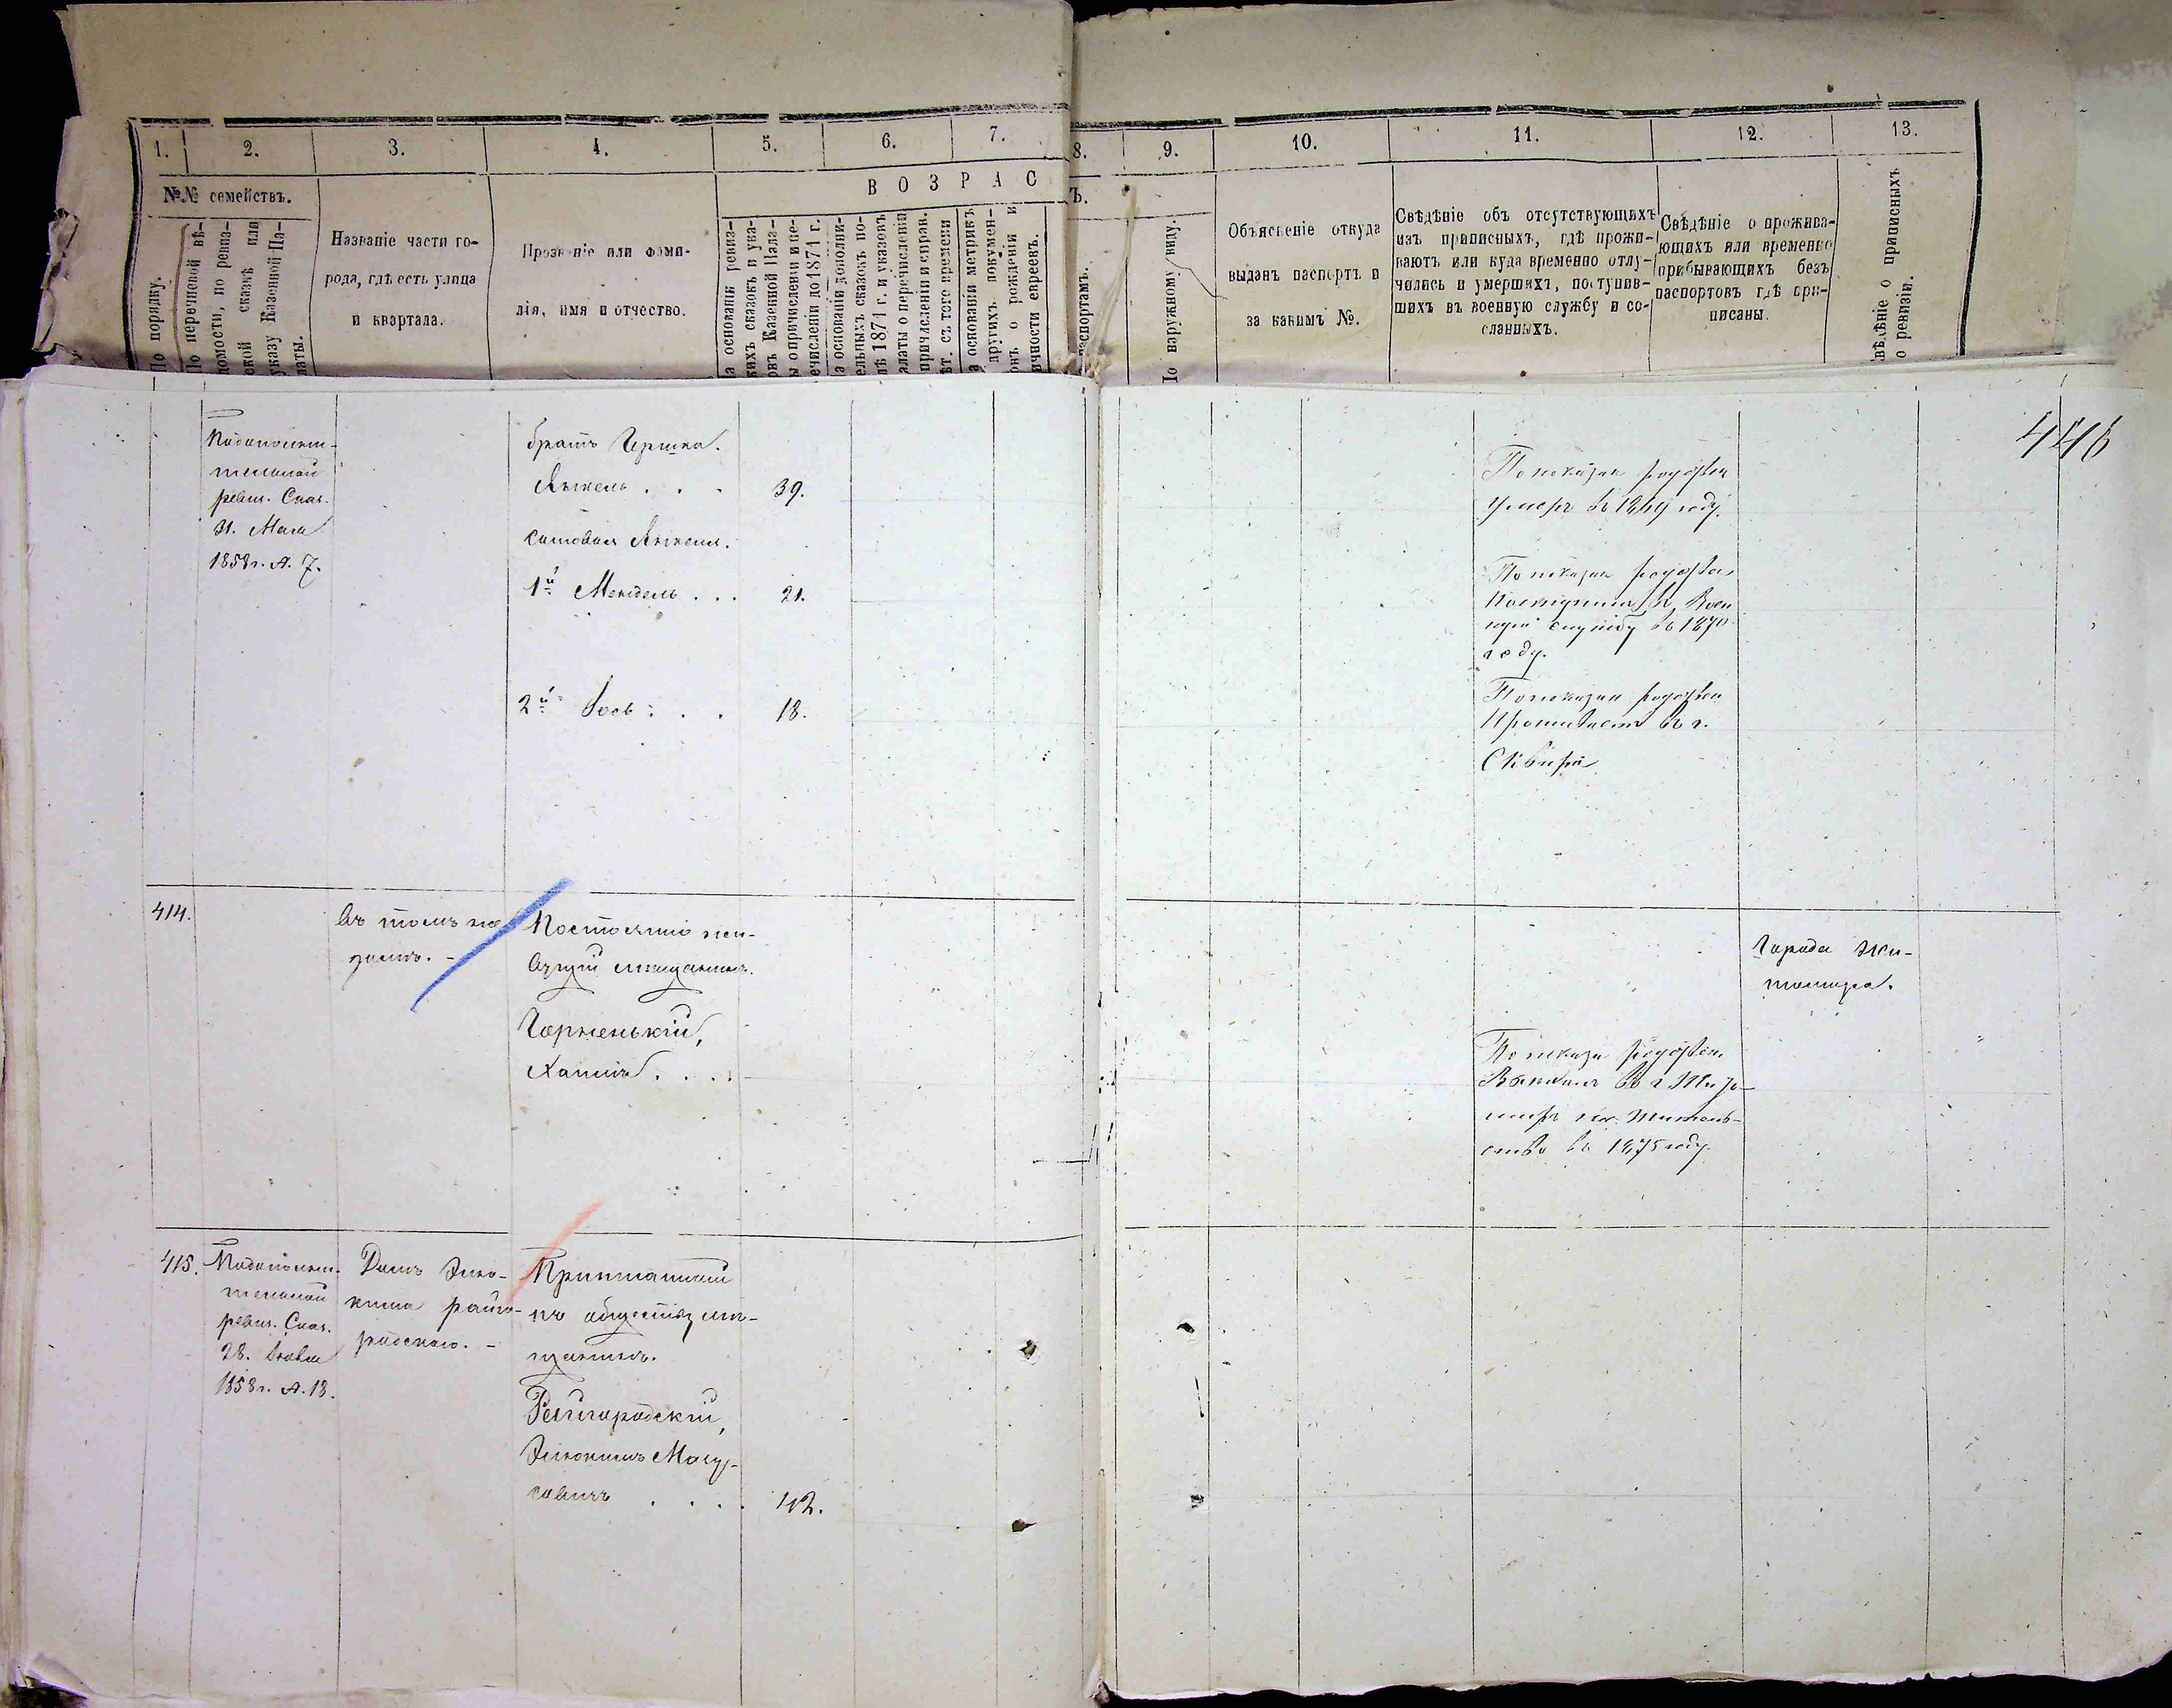 1.
2.
3.
4.
5.
6.
7.
8.
9.
10.
11.
12.
13.
№№ семействъ.
По порядку.
По перечневой вѣ-
домости, по ревиз-
ской сказкѣ или
указу Казенной Па-
латы.
Названіе части го-
рода, гдѣ есть улица
и квартала.
Прозваніе или фами-
лія, имя и отчество.
ВОЗРАС
Ъ.
а основаніи ревиз-
кихъ сказокъ и ука-
овъ Казенной Пала-
ы о причисленіи и пе-
ечисленіи до 1874 г.
а основаніи дополни-
ельныхъ сказокъ по-
лѣ 1874 г. и указовъ
алаты о перечисленіи
причисленіи и справ.
ѣт. съ того времени
а основаніи метрикъ
другихъ докумен-
овъ о рожденіи и
ичности евреевъ.
паспортамъ.
По наружному виду.
Объясненіе откуда
выданъ паспортъ и
за какимъ №.
Свѣдѣніе объ отсутствующихъ
изъ приписныхъ, гдѣ прожи-
ваютъ или куда временно отлу-
чились и умершихъ, поступив-
шихъ въ военную службу и со-
сланныхъ.
Свѣдѣніе о прожива-
ющихъ или временно
прибывающихъ безъ
паспортовъ гдѣ при-
писаны.
вѣдѣніе о приписныхъ
о ревизіи.
446
ревиз. Сказ.
31. Мая
1858 г. Л. 7.
братъ Гершка.
Янкель . . . 39.
сыновья Янкеля.
1й Мендель . . . 21.
2й Іось . . . 18.
По показан родствен
умеръ въ 1869 году.
По показан родствен
поступилъ въ воен
ную службу въ 1870
году.
По показан родствен
проживаетъ въ г.
Сквирѣ
414.
Въ томъ же
домѣ. -
Постоянно жи-
вущій мѣщанинъ.
Чорненькій,
Хаимъ . . . .
Города Жи-
томира.
По показа родствен
въ г Жито-
миръ на житель-
ство въ 1875 году.
415.
ревиз. Сказ.
28.
1858 г. Л. 18.
Домъ Элю-
кима Райго-
родскаго. -
къ обществу мѣ-
щанинъ.
Райгородскій,
Элюкимъ Мошу-
ковичъ . . . . 42.